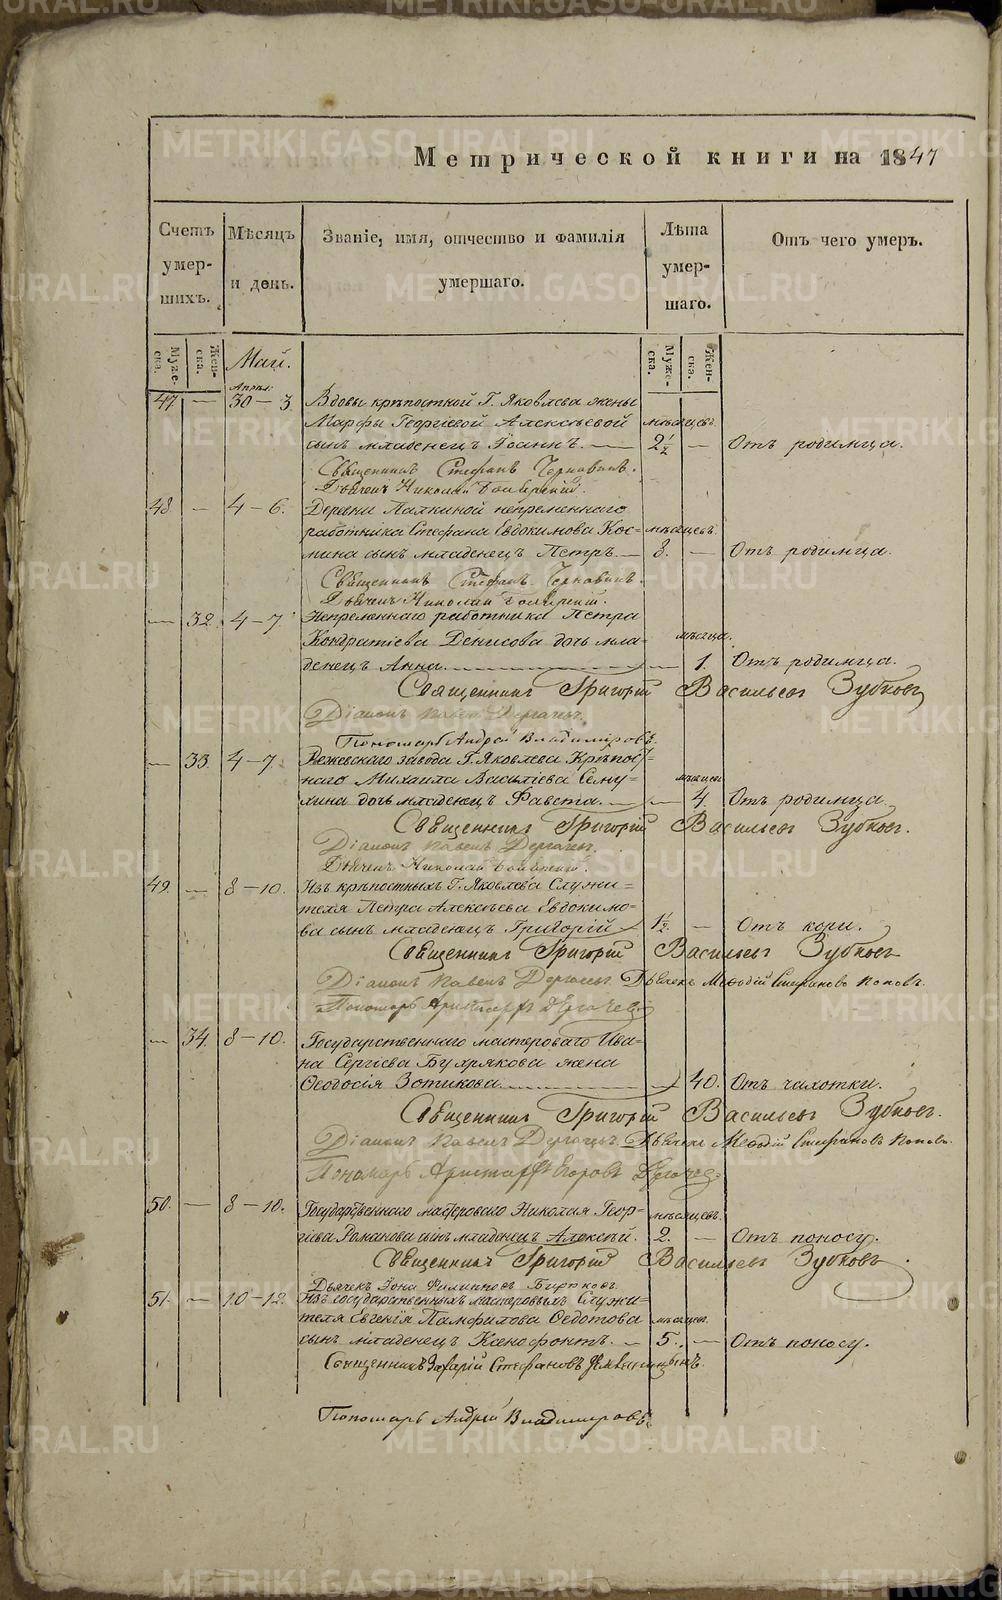 Метрической книги на 1847
Счетъ умер-шихъ.
Мѣсяцъ и день.
Званіе, имя, отчество и фамилія умершаго.
Лѣта умер-шаго.
Отъ чего умеръ.
Муже-ска. Жен-ска. Май. Муже-ска. Жен-ска.
Апрѣл:
47 — 30 — 3. Вдовы крѣпостной Г. Яковлева жены
Марфы Георгіевой Алексѣевой мѣсяцевъ.
сынъ младенецъ Іоаннъ. — 2½ — Отъ родимца.
Священникъ Стефанъ Черновинъ.
Дьячекъ Николай
48 — 4 — 6. Деревни Галкиной непременнаго
работника Стефана Евдокимова Кос- мѣсяцевъ.
мина сынъ младенецъ Петръ. — 3. — Отъ родимца.
Священникъ Стефанъ Черновинъ.
Дьячекъ Николай
— 32. 4 — 7 Непременнаго работника Петра
Кондратіева Денисова дочь мла- мѣсяца.
денецъ Анна. — — 1. Отъ родимца.
Священникъ Григорій Васильевъ Зубковъ
Діаконъ Павелъ Дергачевъ.
Пономарь Андрей Владимировъ.
— 33. 4 — 7. Режевскаго завода Г. Яковлева Крѣпост-
наго Михаила Василіева Сему- мѣсяцев.
хина дочь младенецъ Фавста. — — 4. Отъ родимца.
Священникъ Григорій Васильевъ Зубковъ.
Діаконъ Павелъ Дергачевъ.
Дьячекъ Николай
49. — 8 — 10. Изъ крѣпостныхъ Г. Яковлева Служи-
теля Петра Алексѣева Евдокимо-
ва сынъ младенецъ Григорій — 1½ — Отъ кори.
Священникъ Григорій Васильевъ Зубковъ
Діаконъ Павелъ Дергачевъ. Дьячекъ Меѳодій Стефановъ Поповъ.
Пономарь Аристархъ Дергачевъ.
— 34. 8 — 10. Государственнаго мастероваго Ива-
на Сергіева Бухрякова жена
Ѳеодосія Зотикова. — 40. Отъ чахотки.
Священникъ Григорій Васильевъ Зубковъ.
Діаконъ Павелъ Дергачевъ. Дьячекъ Меѳодій Стефановъ Поповъ.
Пономарь Аристархъ Егоровъ Дергачевъ.
50. — 8 — 10. Государственнаго мастероваго Николая Геор- мѣсяцевъ.
гіева Романова сынъ младенецъ Алексѣй. 2. — Отъ поносу.
Священникъ Григорій Васильевъ Зубковъ
Дьячекъ Іона Филипповъ Бирюковъ
51. — 10 — 12. Изъ государственныхъ мастеровыхъ Служи-
теля Евгенія Памфилова Ѳедотова мѣсяцев.
сынъ младенецъ Ксенофонтъ. — 5. — Отъ поносу.
Священникъ Захарій Стефановъ
Пономарь Андрей Владимировъ.
METRIKI.GASO-URAL.RU